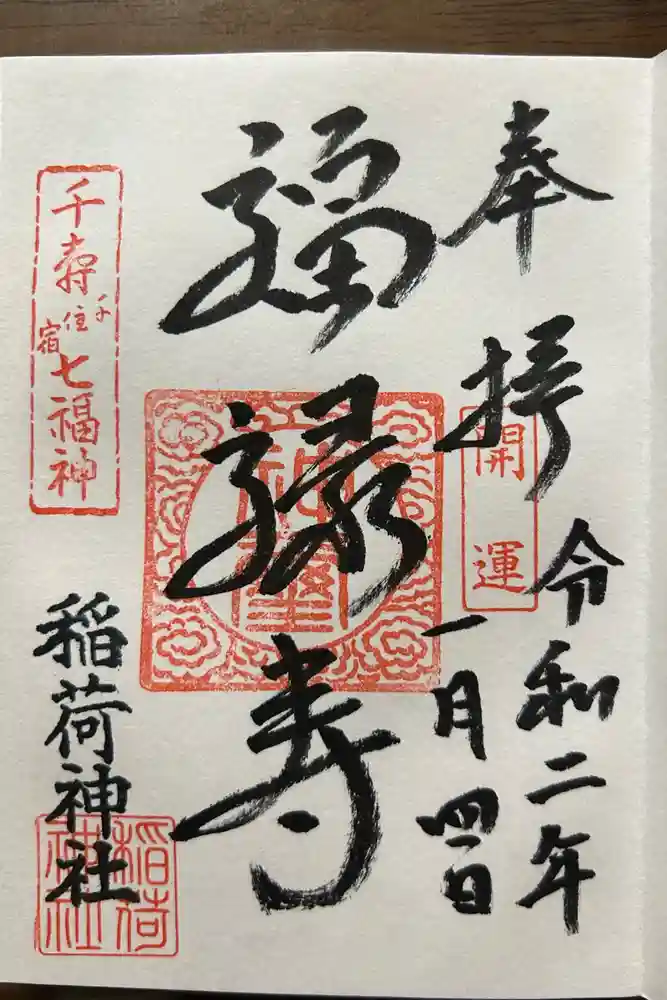 奉拝
開運
令和二年
一月四日
福禄寿
神璽
千寿七福神
千住宿
稲荷神社
稲荷神社